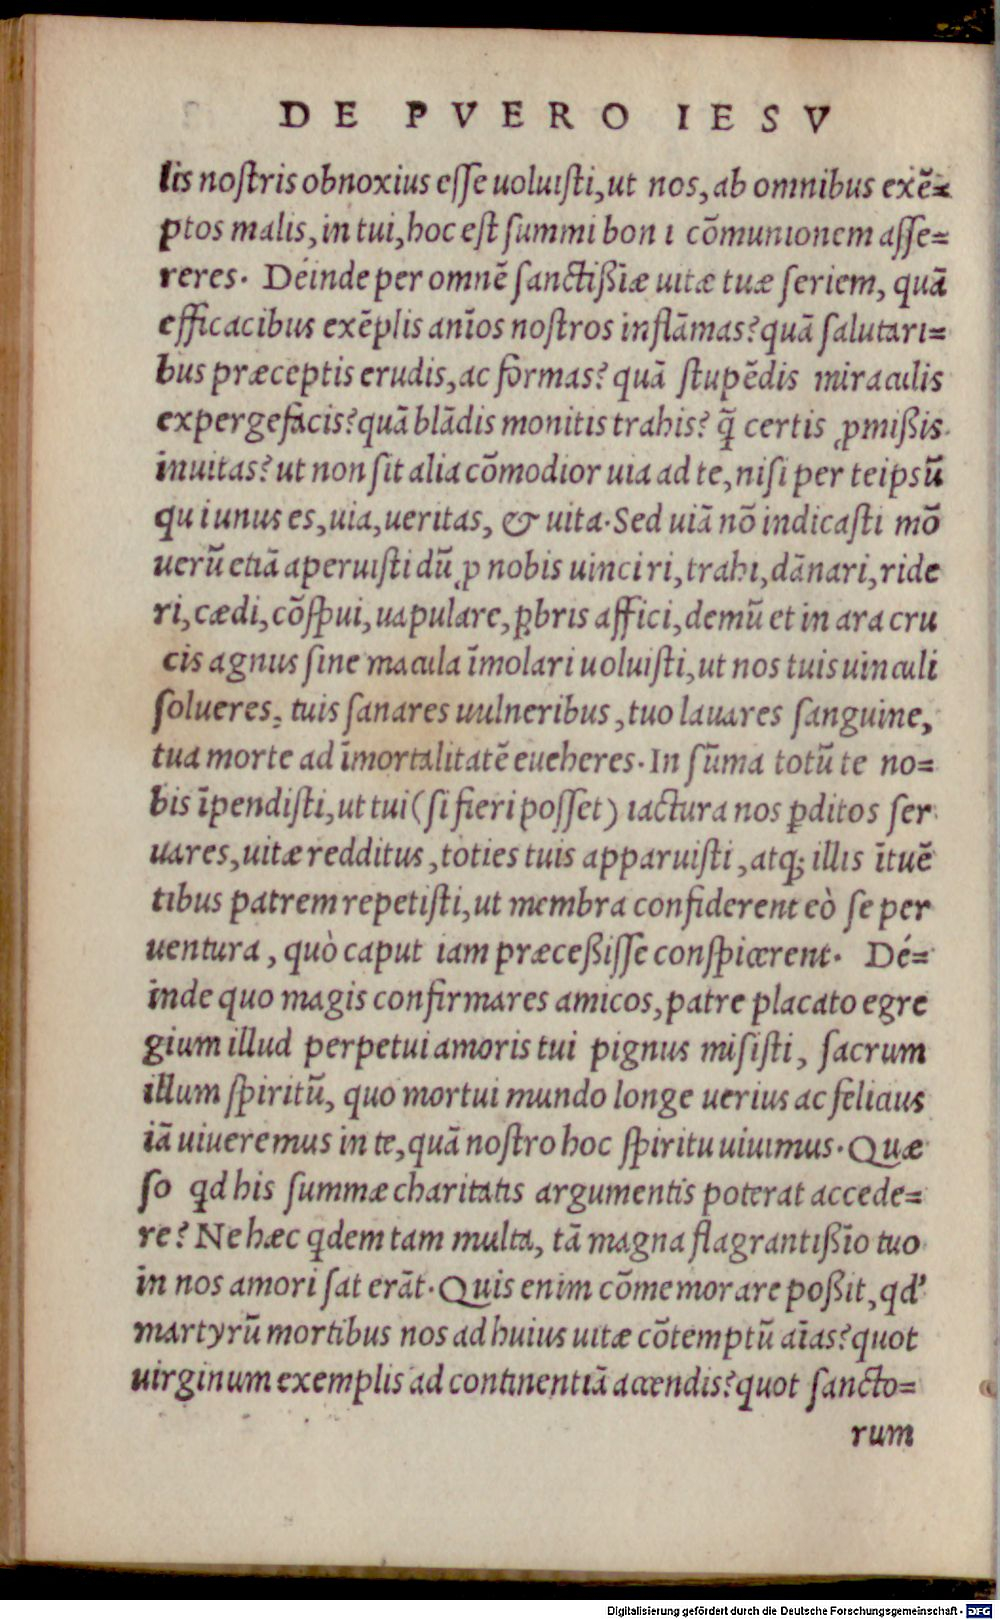 DE PVERO IESV
lis nostris obnoxius esse uoluisti, ut nos, ab omnibus exē=
ptos malis, in tui, hoc est summi boni cōmunionem asse=
reres. Déinde per omnē sanctißīæ uitæ tuæ seriem, quā
efficacibus exēplis anīos nostros inflāmas? quā salutari=
bus præceptis erudis, ac formas? quā stupēdis miraculis
expergefacis? quā blādis monitis trahis? q̄ certis ꝓmißis
inuitas? ut non sit alia cōmodior uia ad te, nisi per teipsū
qui unus es, uia, ueritas, & uita. Sed uiā nō indicasti mō
uerū etiā aperuisti dū ꝓ nobis uinciri, trahi, dānari, ride
ri, cædi, cōspui, uapulare, ꝓbris affici, demū et in ara cru
cis agnus sine macula īmolari uoluisti, ut nos tuis uinculi
solueres, tuis sanares uulneribus, tuo lauares sanguine,
tua morte ad īmortalitatē eueheres. In sūma totū te no=
bis īpendisti, ut tui (si fieri posset) iactura nos ꝑditos ser
uares, uitæ redditus, toties tuis apparuisti, atq; illis ītuē
tibus patrem repetisti, ut membra confiderent eò se per
uentura, quò caput iam præceßisse conspicerent. Dé=
inde quo magis confirmares amicos, patre placato egre
gium illud perpetui amoris tui pignus misisti, sacrum
illum spiritū, quo mortui mundo longe uerius ac felicius
iā uiueremus in te, quā nostro hoc spiritu uiuimus. Quæ
so qd his summæ charitatis argumentis poterat accede=
re? Ne hæc qdem tam multa, tā magna flagrantißīo tuo
in nos amori sat erāt. Quis enim cōmemorare poßit, qd'
martyrū mortibus nos ad huius uitæ cōtemptū aīas? quot
uirginum exemplis ad continentiā accendis? quot sancto=
rum
Digitalisierung gefördert durch die Deutsche Forschungsgemeinschaft - DFG